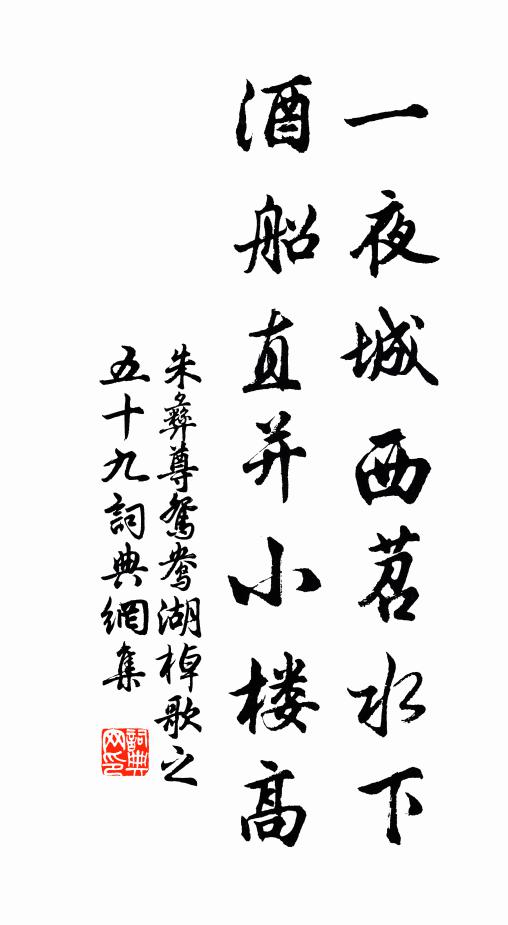 一夜城西苕水下
酒船直并小楼高
朱彝尊鸳鸯湖棹歌之
五十九詞典網集
詞典网印